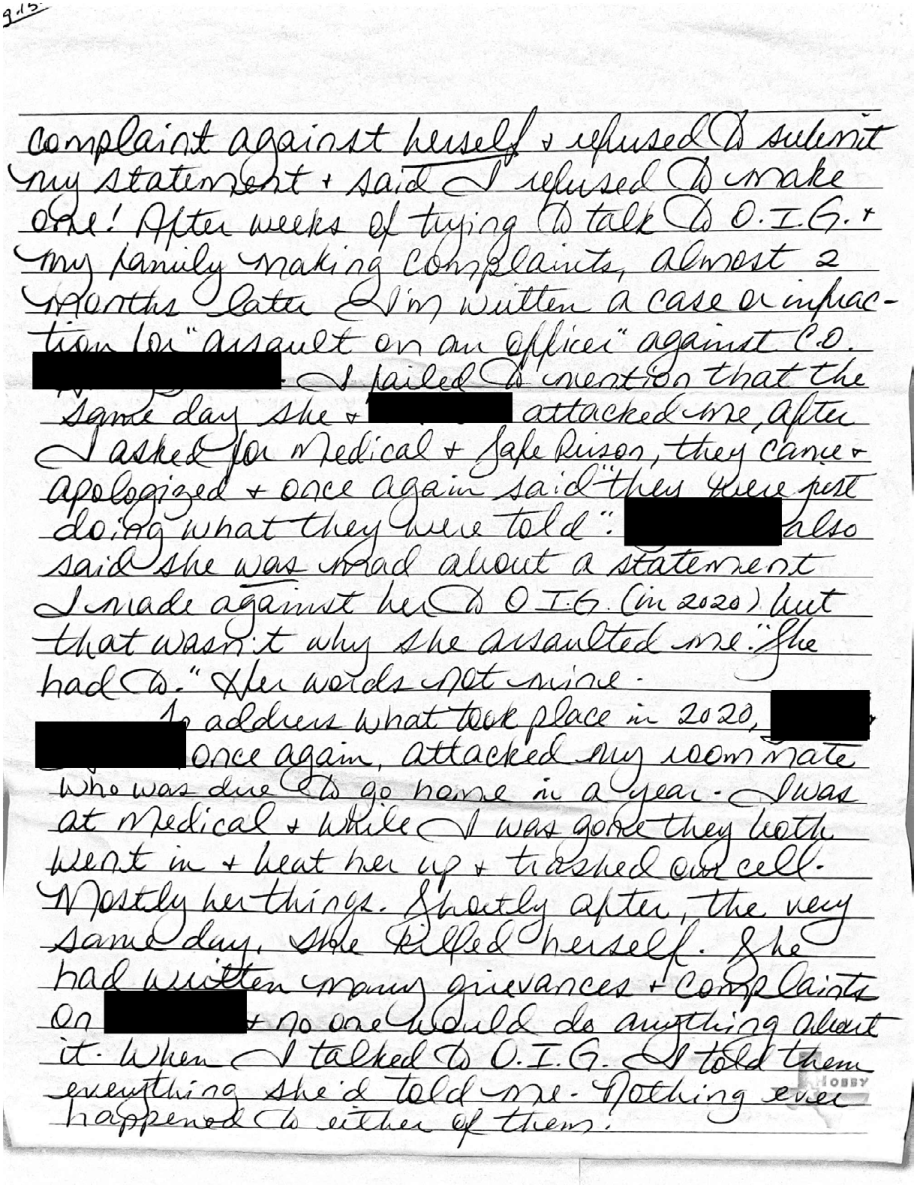 complaint against herself + refused to submit
my statement + said I refused to make
one! After weeks of trying to talk to O.I.G. +
my family making complaints, almost 2
months later I'm written a case or infrac-
tion for "assault on an officer" against C.O.
. I failed to mention that the
same day she + attacked me, after
I asked for Medical + Safe Prison, they came +
apologized + once again said "they were just
doing what they were told". also
said she was mad about a statement
I made against her to O.I.G. (in 2020) but
that wasn't why she assaulted me. "She
had to." Her words not mine.
To address what took place in 2020,
once again, attacked my roommate
who was due to go home in a year. I was
at Medical + while I was gone they both
went in + beat her up + trashed our cell.
Mostly her things. Shortly after, the very
same day, she killed herself. She
had written many grievances + complaints
on + no one would do anything about
it. When I talked to O.I.G. I told them
everything she'd told me. Nothing ever
happened to either of them.
HOBBY